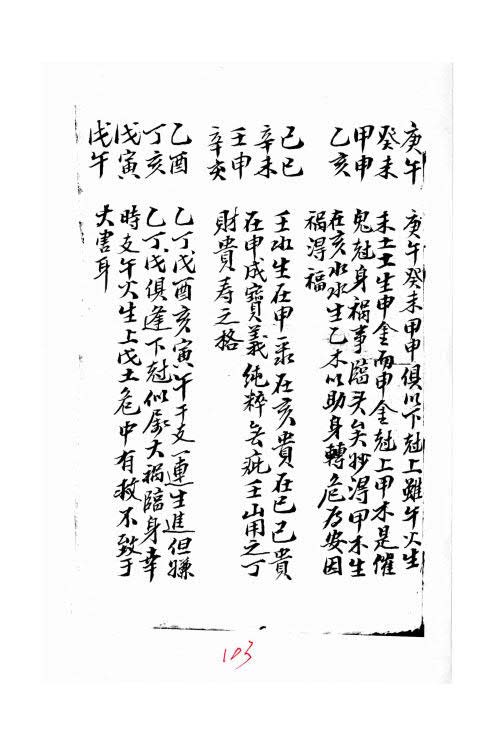 庚午
癸未
甲申
乙亥
庚午癸未甲申俱以下尅上雖午火生
未土土生申金而申金尅上甲木是催
鬼尅身禍事臨头矣妙得甲木生
在亥水水生乙木以助身轉危為安因
禍得福
己巳
辛未
壬申
辛亥
壬水生在申祿在亥貴在巳己貴
在申成寶義純粹無疵壬山用之丁
財貴寿之格
乙酉
丁亥
戊寅
戊午
乙丁戊酉亥寅午干支一連生進但嫌
乙丁戊俱逢下尅似屬大禍臨身幸
時支午火生上戊土危中有救不致于
大害耳
103